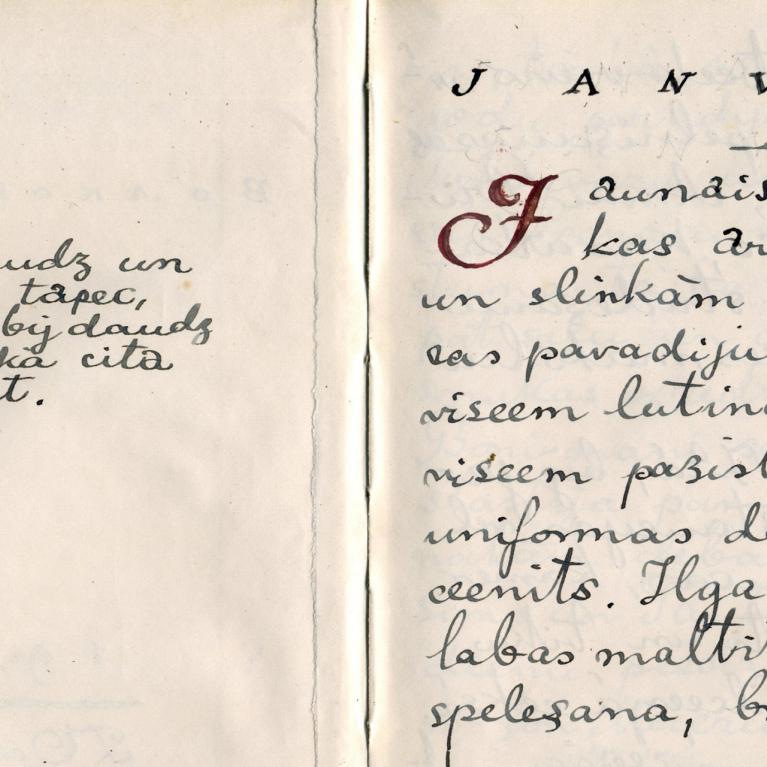 udz un
tāpec,
bij daudz
kā citā
t.
J A N V
Jaunais
kas ar
un slinkām
sas paradiju
viseem lutin
viseem pazist
uniformas d
ceenits. Ilga
labas malti
spelešana, b